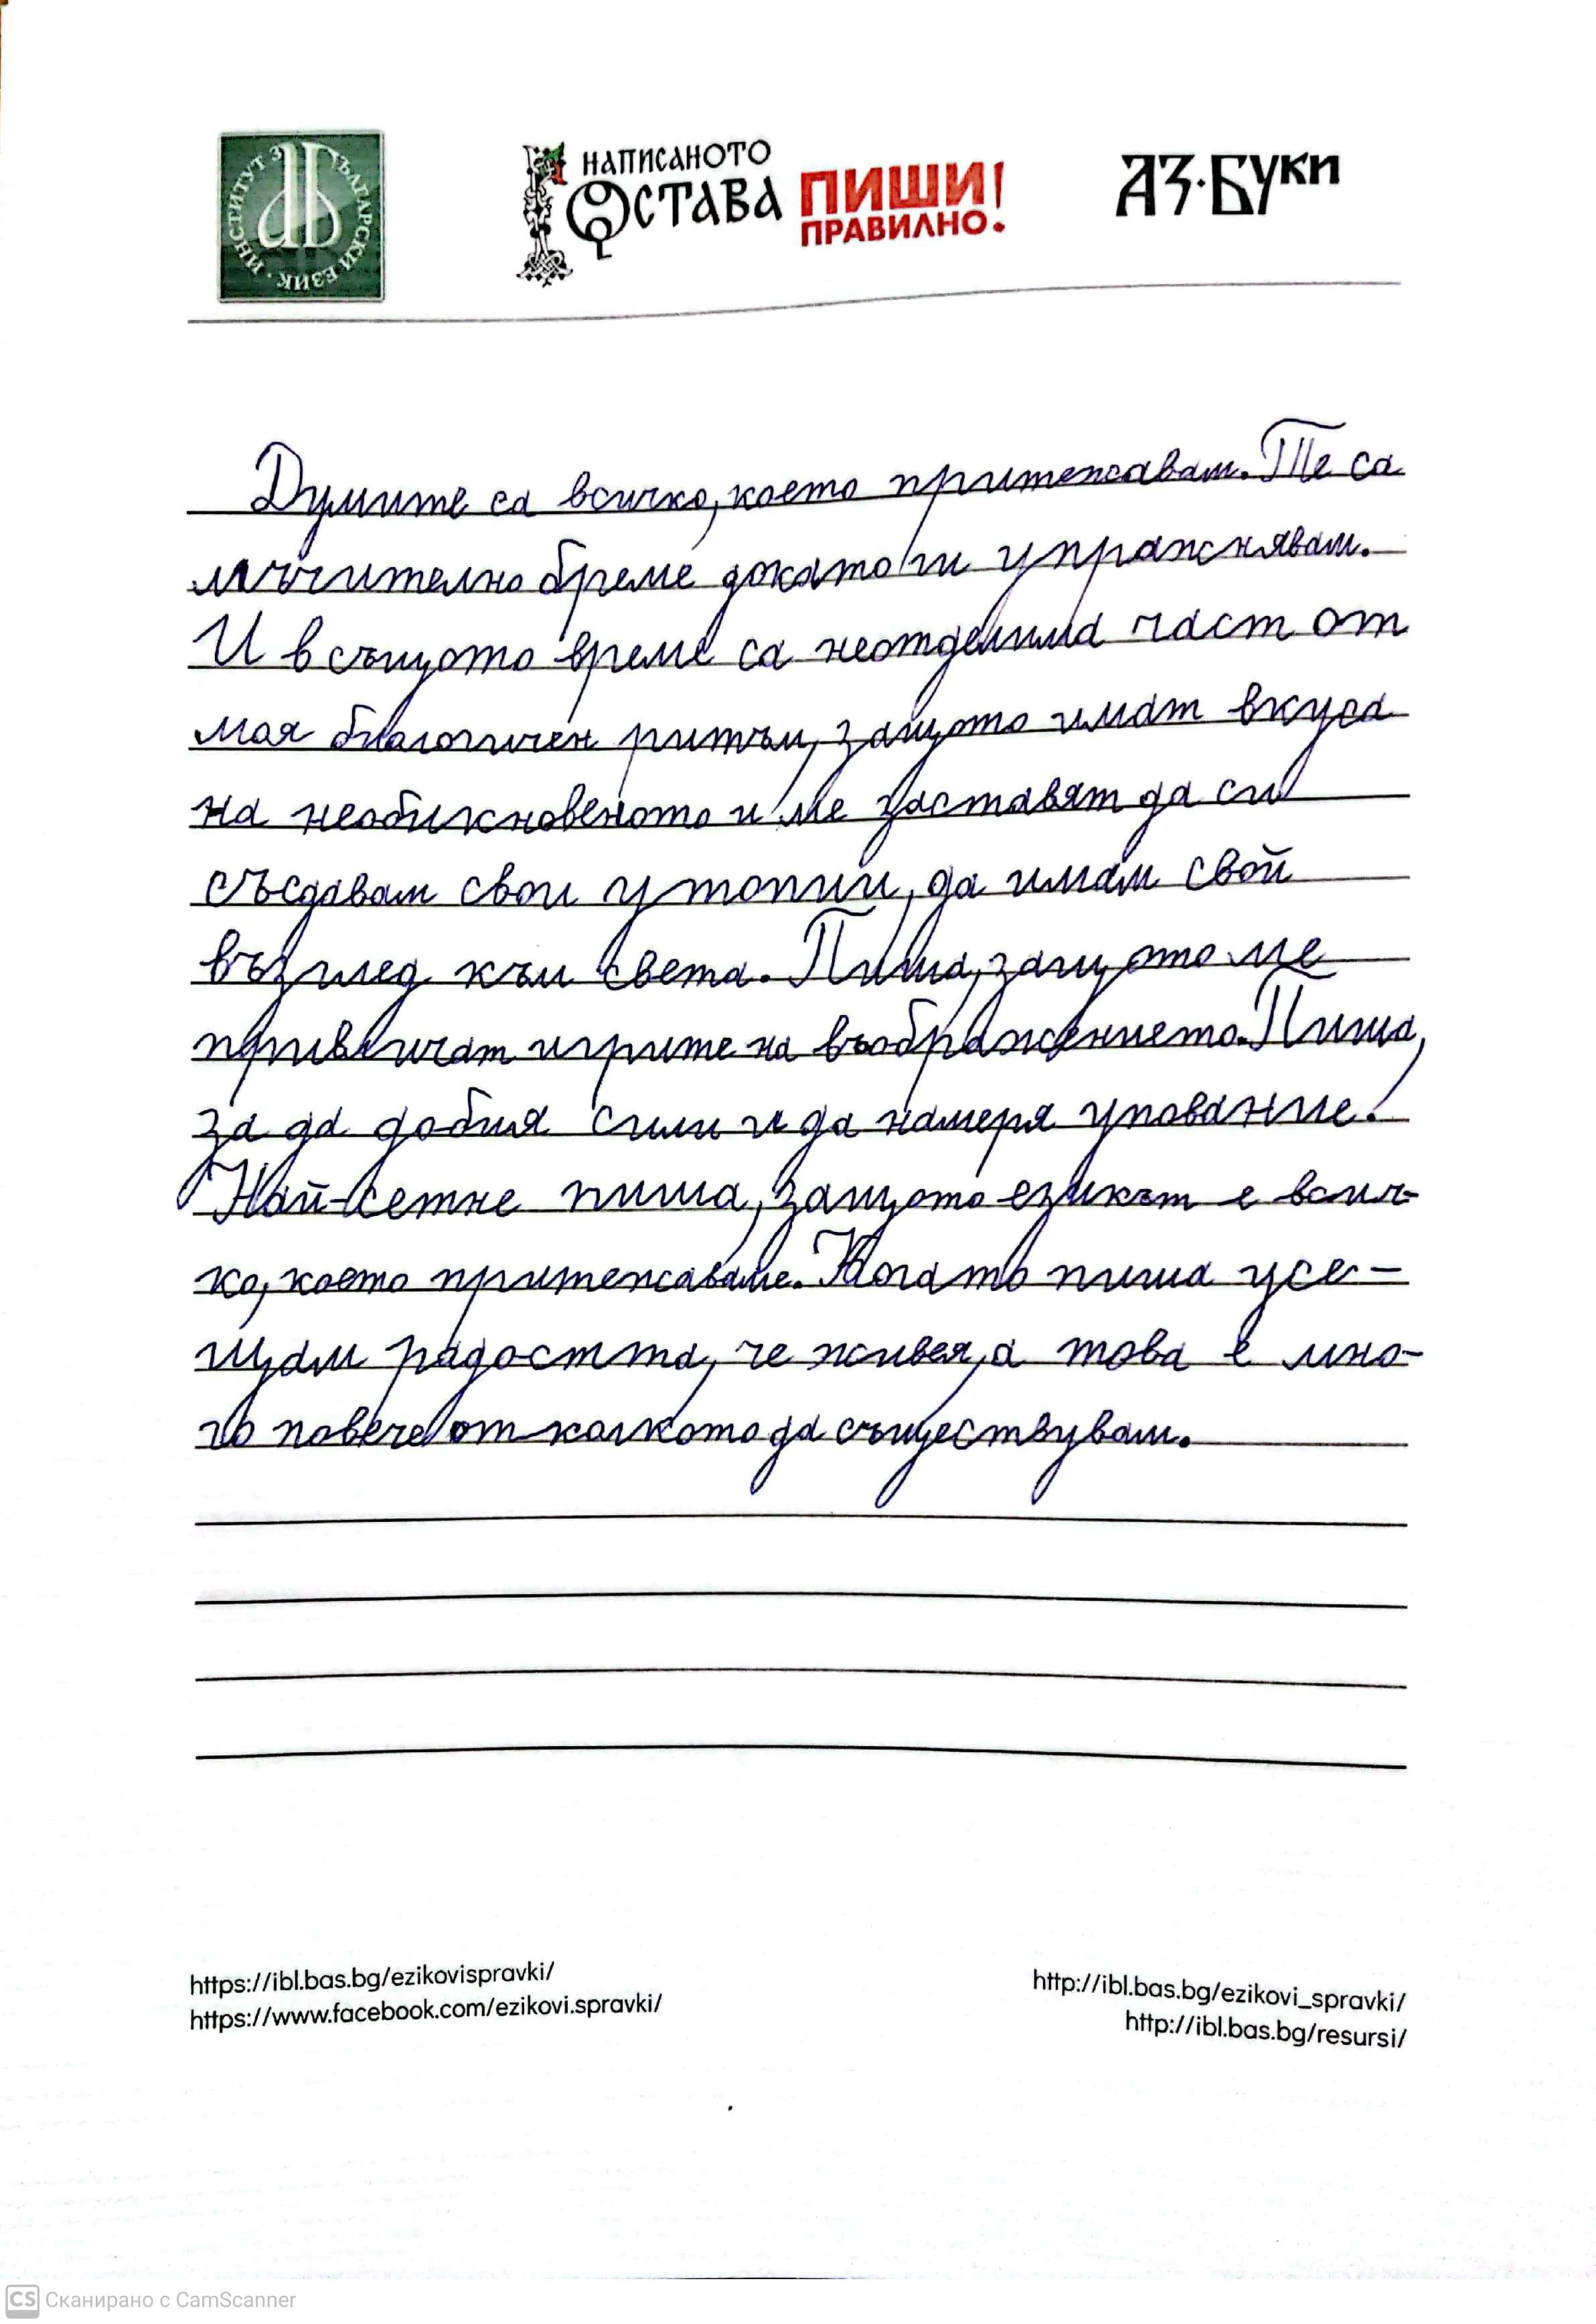 ИНСТИТУТ ЗА БЪЛГАРСКИ ЕЗИК
НАПИСАНОТО
ОСТАВА
ПИШИ!
ПРАВИЛНО.
АЗ·БУКИ
Думите са всичко, което притежавам. Те са
мъчително бреме докато ги упражнявам.
И в същото време са неотделима част от
моя биологичен ритъм, защото имат вкуса
на необикновеното и ме заставят да си
създавам свои утопии, да имам свой
възглед към света. Пиша, защото ме
привличат игрите на въображението. Пиша,
за да добия сили и да намеря упование.
Най-сетне пиша, защото езикът е всич-
ко, което притежаваме. Когато пиша усе-
щам радостта, че живея, а това е мно-
го повече от колкото да съществувам.
https://ibl.bas.bg/ezikovispravki/
https://www.facebook.com/ezikovi.spravki/
http://ibl.bas.bg/ezikovi_spravki/
http://ibl.bas.bg/resursi/
CS Сканирано с CamScanner